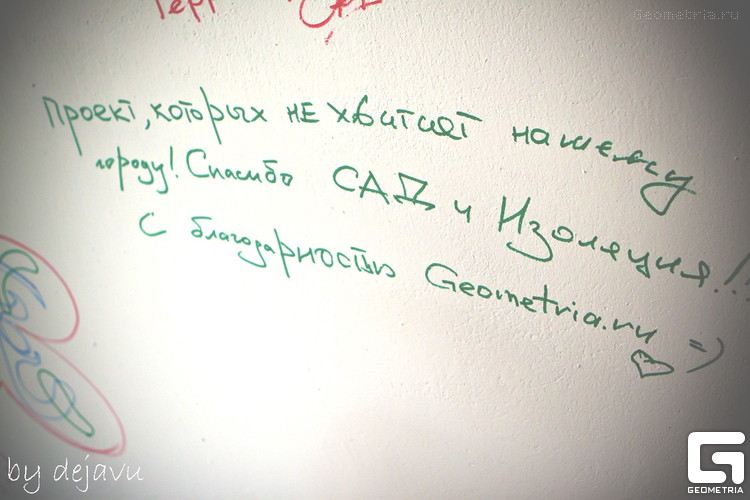 Geometria.ru
Проект, которых не хватает нашему
городу! Спасибо САД и Изоляция!!!
С благодарностью Geometria.ru =)
by dejavu
GEOMETRIA